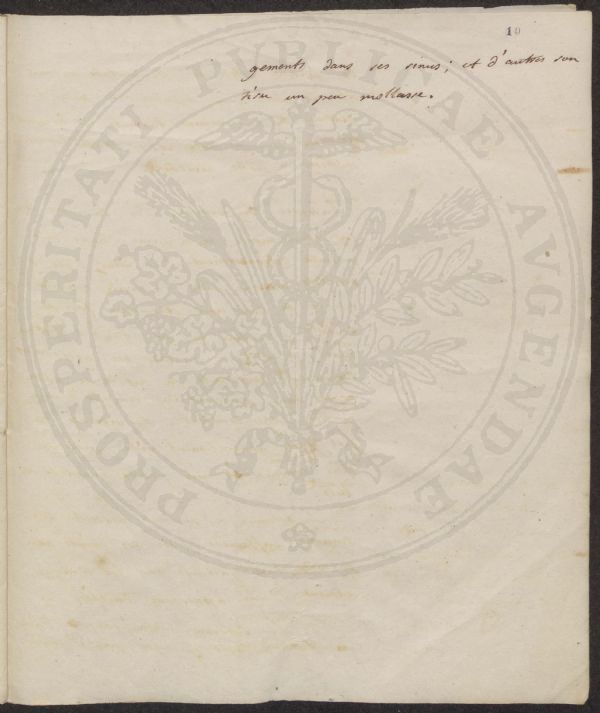 10
gements dans ses sinus; et d'autres son
tissu un peu mollasse.
PROSPERITATI PVBLICAE AVGENDAE